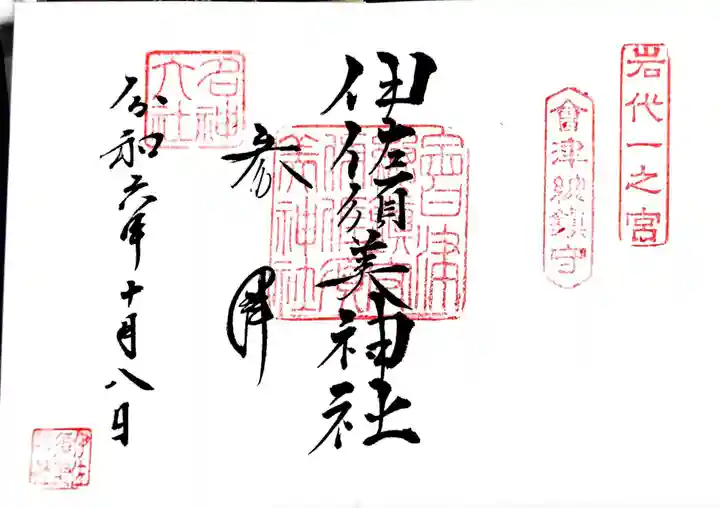 岩代一之宮
會津総鎮守
伊佐須美神社
参拝
名神
大社
令和六年十月八日